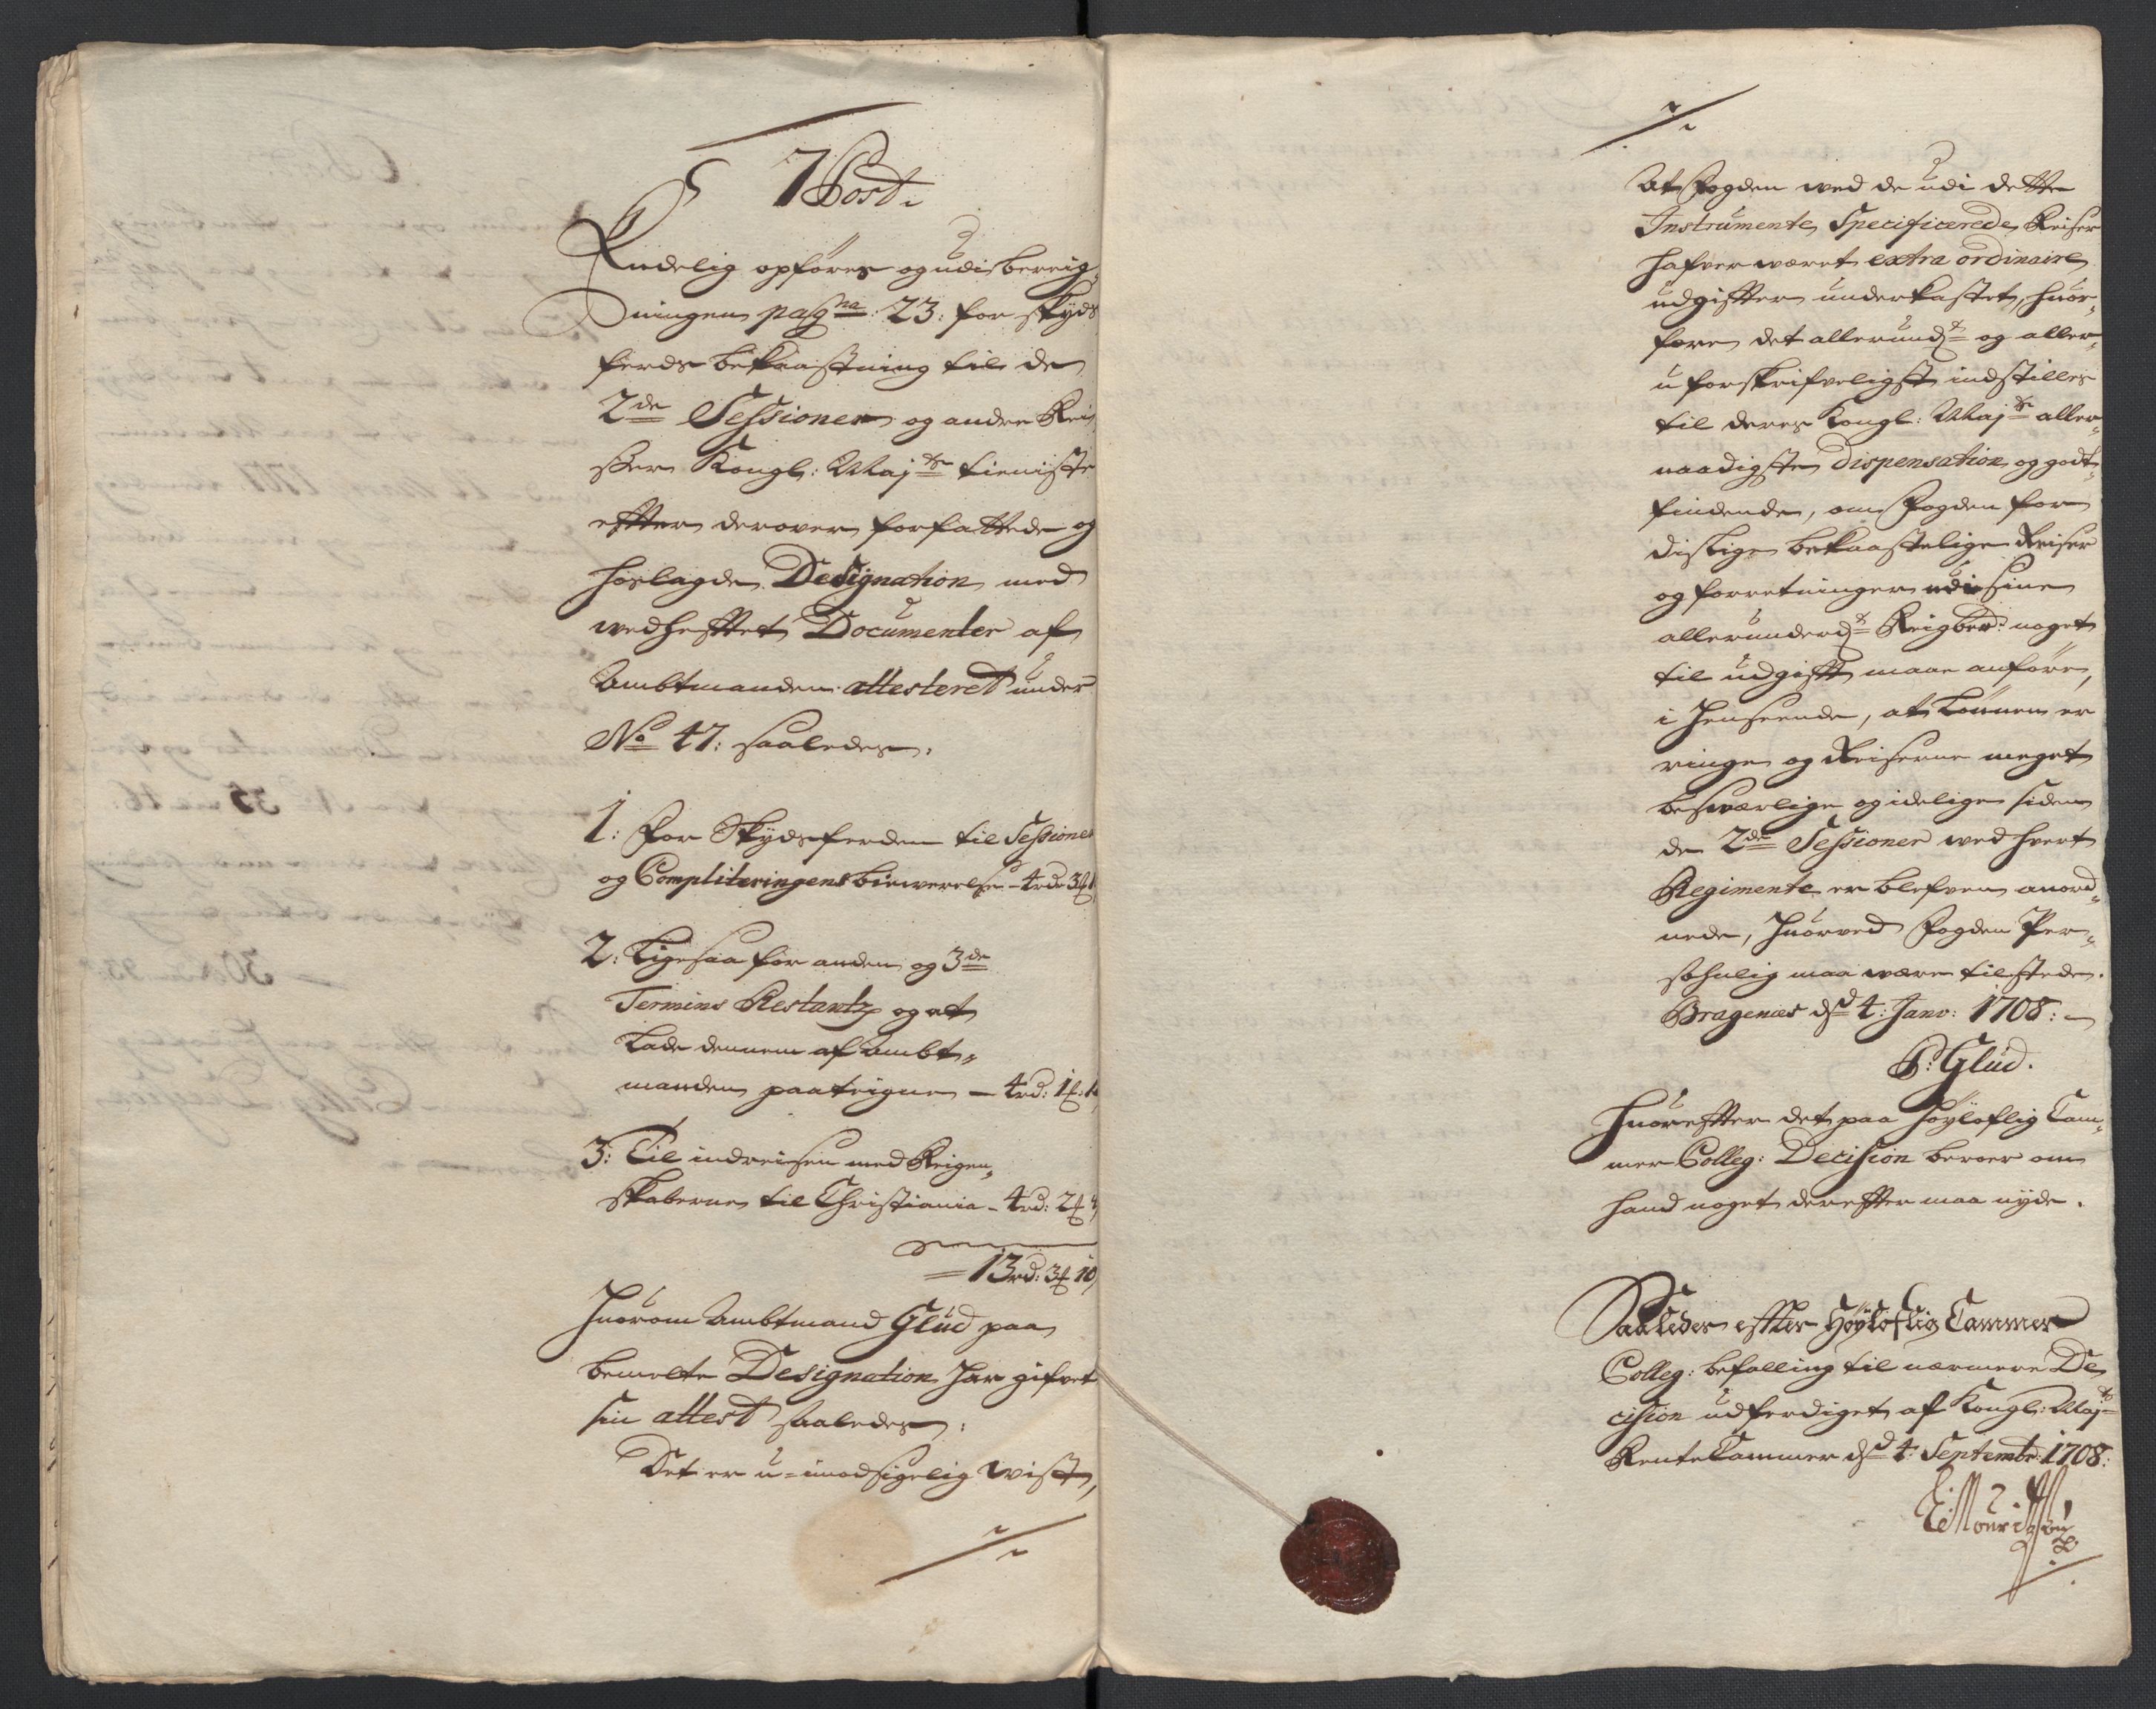 7 Post.
Endelig opføres og udi bereig¬
ningen pag̅na: 23: for skyds
ferds bekaastning til de
2de Sessioner og andre Rei
ser Kongl: Maj:ts tieniste
effter derover forfattede og
hoslagde Designation med
wedhefftet Documenter af
Ambtmanden attesteret under
No 47: saaledes.
1: For Skydsferden til Sessionen
og Compliteringens biewerelse - 4rdr 3
2: Ligesaa for anden og 3de
Termins Restantz og at
lade dennem af Ambt¬
manden paateigne — 4rd: 1
3: Til indreisen med Reigen¬
skaberne til Christiania - 4rd: 2
= 13rd: 3 10
Huorom Ambtmand Glud paa
bemelte Designation har gifvet
sin attest saaledes:
Det er u-imodsigelig wist,
At Fogden wed de udi dette
Instrumente Specificerede Reiser
hafver wæret extra ordinaire
udgiffter underkastet, huor¬
fore det allerund:t og aller¬
uforskrifveligst indstilles
til deres Kongl: Maj:ts aller¬
naadigste dispensation og godt¬
findende, om Fogden for
dislige bekaastelige Reiser
og forretninger udi sine
allerunderd:t Reigber: noget
til udgifft maae anføre,
i henseende, at Lønnen er
ringe og Reiserne meget
besværlige og idelige siden
de 2de Sessioner wed hvert
Regimente er blefven anord¬
nede, huorved Fogden Per¬
sohnlig maa være tilstede.
Bragenæs d: 4: Janv: 1708: —
P: Glud.
Huoreffter det paa høyloflig Cam¬
mer Colleg: Decision beroer om
hand noget dereffter maa nyde.
Saaledes effter Høyloflig Cammer
Colleg: befalling til nærmere De
cision udferdiget af Kongl: Maj:ts
Rente Cammer d: 4: Septembr: 1708: